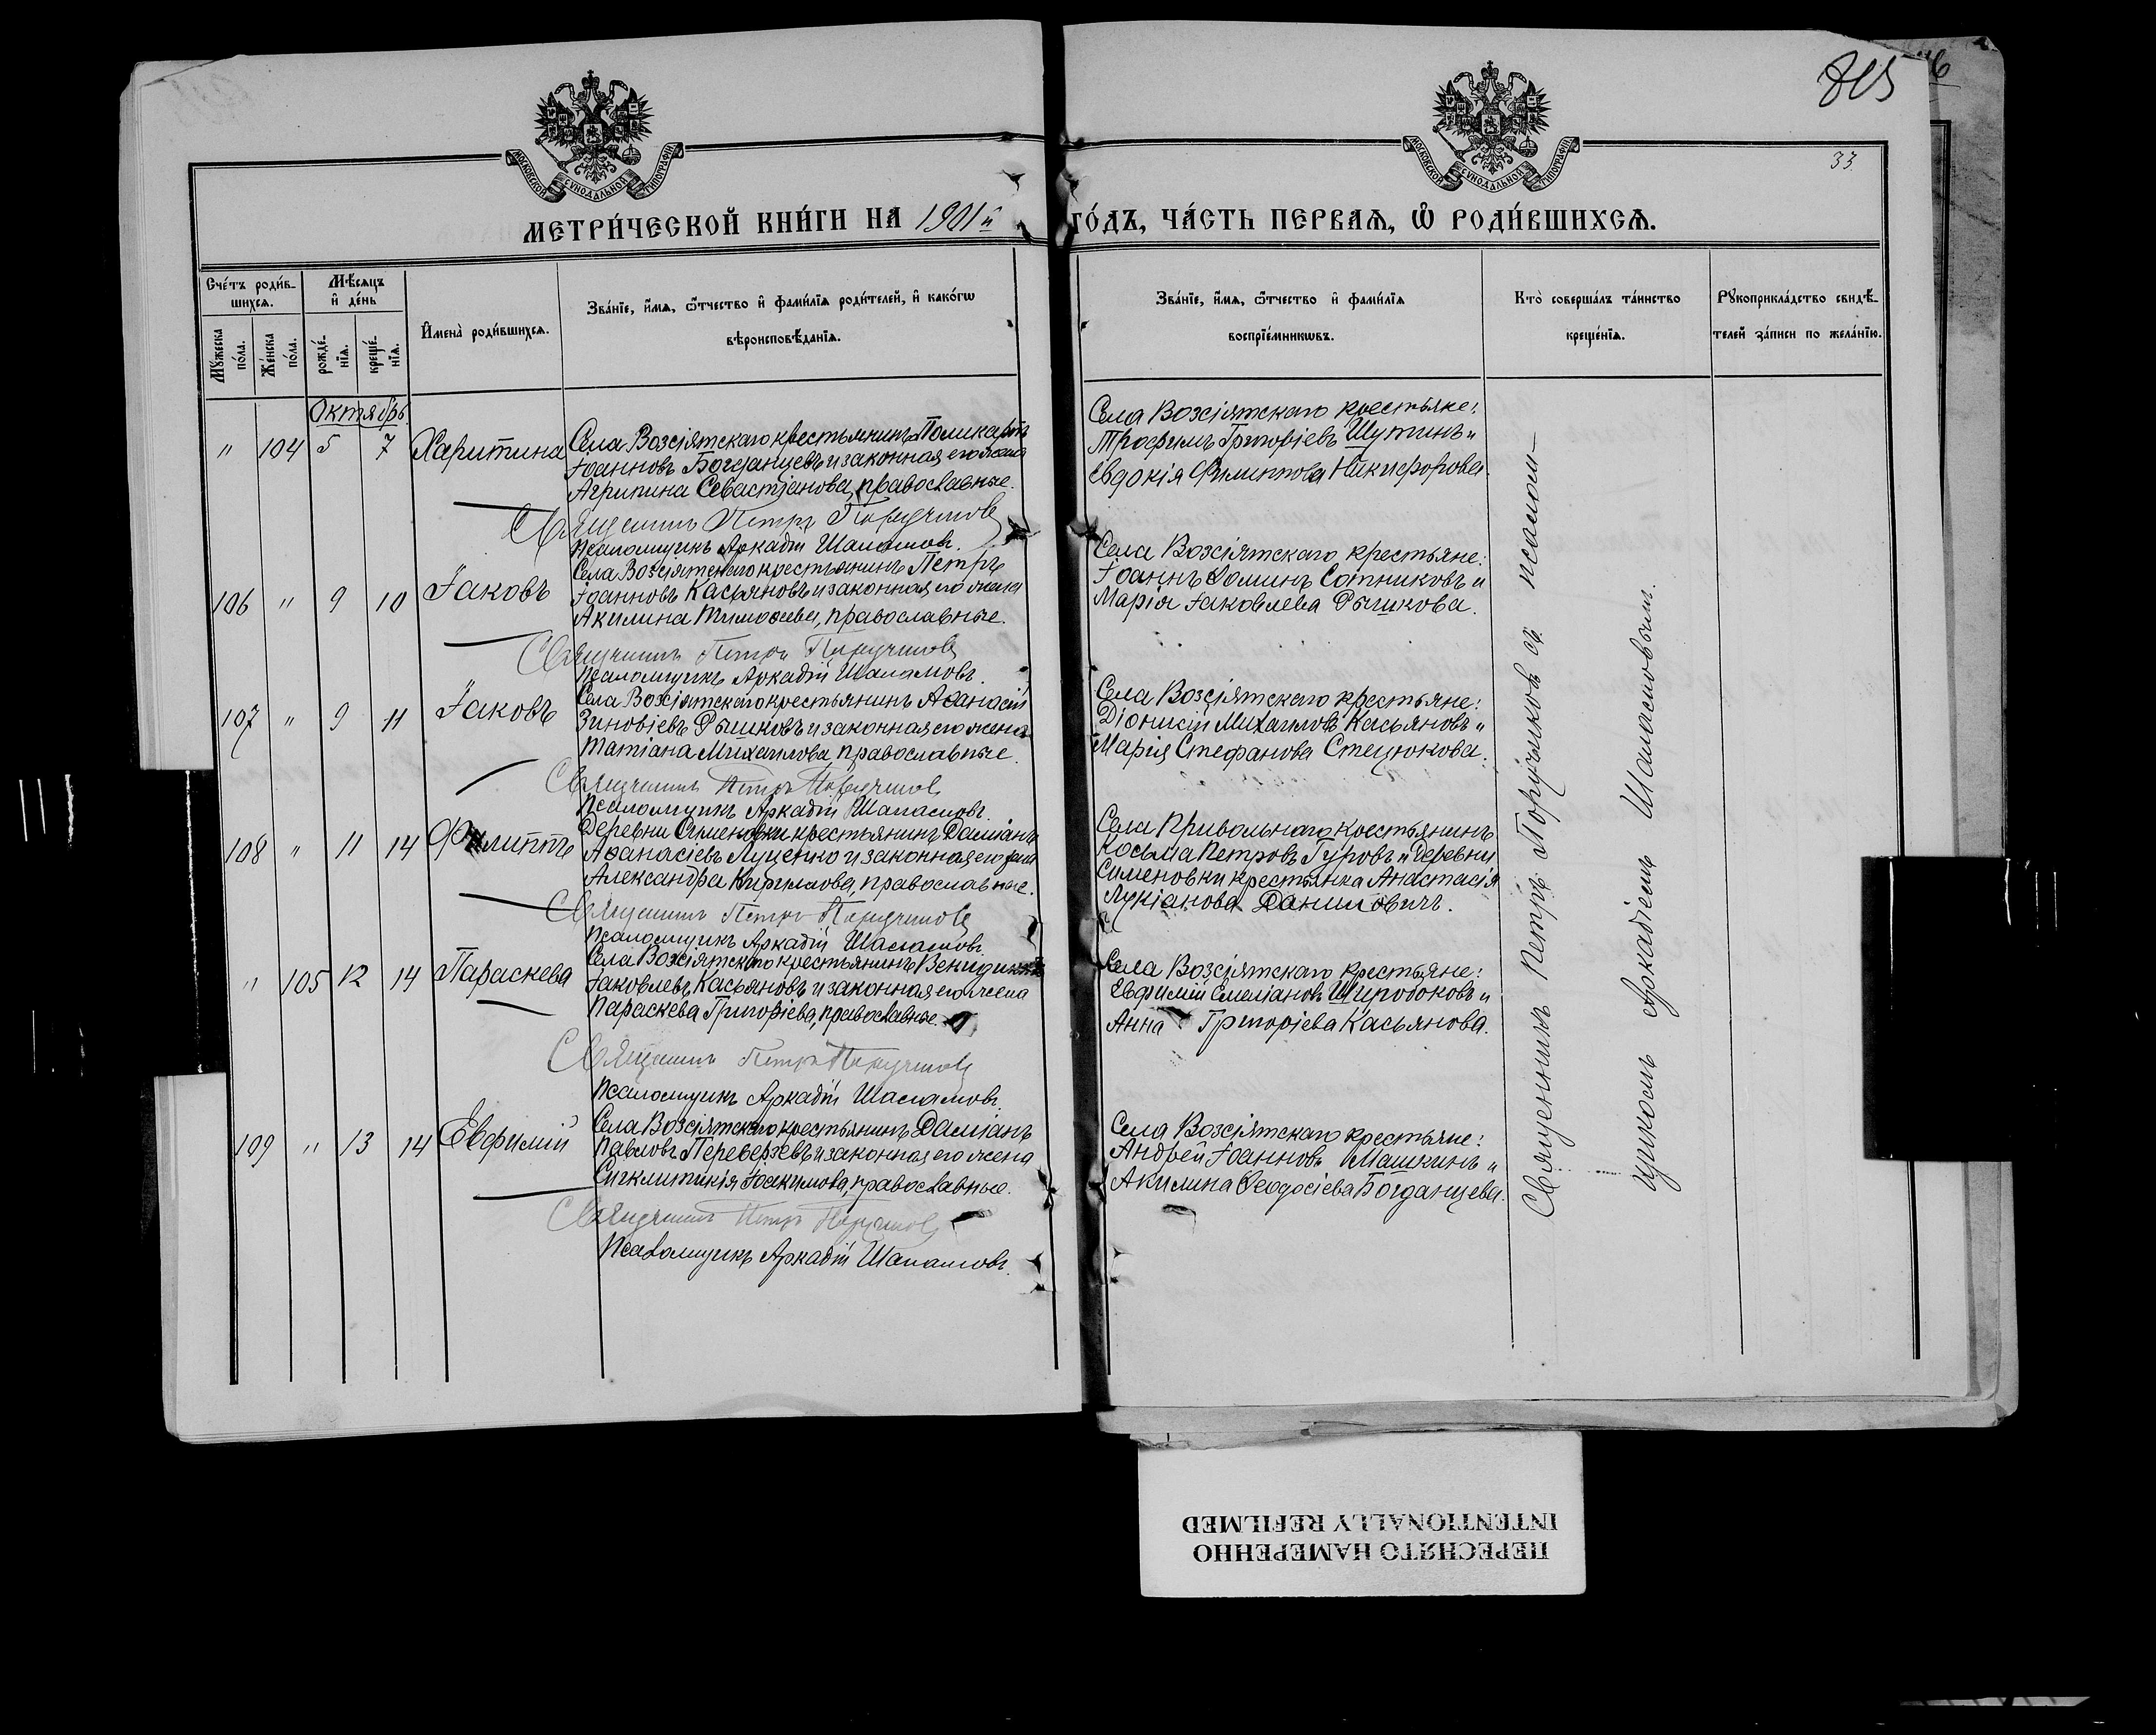 815
33
МОСКОВСКОЙ СѴНОДАЛЬНОЙ ТИПОГРАФІИ
МОСКОВСКОЙ СѴНОДАЛЬНОЙ ТИПОГРАФІИ
МЕТРИ́ЧЕСКОЙ КНИ́ГИ НА 1901й ГО́ДЪ, ЧА́СТЬ ПЕРВАѦ, Ѽ РОДИ́ВШИХСѦ.
Сче́тъ роди́в-
шихся.
Мѣ́сяцъ
и҆ де́нь
Мꙋ́жеска
по́ла.
Же́нска
по́ла.
рожде́-
нїѧ.
креще́-
нїѧ.
И҆мена̀ роди́вшихсѧ.
Зва́нїе, и҆́мѧ, ѻ҆́тчество и҆ фами́лїѧ роди́телей, и҆ како́гѡ
вѣроисповѣ́данїѧ.
Зва́нїе, и҆́мѧ, ѻ҆́тчество и҆ фами́лїѧ
воспрїе́мникѡвъ.
Кто̀ соверша́лъ та́инство
креще́нїѧ.
Рꙋкоприкла́дство свидѣ́-
телей за́писи по жела́нїю.
Октябрь
" 104 5 7 Харитина
Села Возсіятскаго крестьянинъ Поликарпъ
Іоанновъ Богданцевъ и законная его жена
Агрипина Севастіанова, православные.
Священникъ Петръ Поручиковъ
Псаломщикъ Аркадій Шаламовъ.
Села Возсіятскаго крестьяне:
Трофимъ Григоріевъ Шутинъ и
Евдокія Филиппова Никифорова.
106 " 9 10 Іаковъ
Села Возсіятскаго крестьянинъ Петръ
Іоанновъ Касьяновъ и законная его жена
Акилина Тимоѳеева, православные.
Священникъ Петръ Поручиковъ
Псаломщикъ Аркадій Шаламовъ.
Села Возсіятскаго крестьяне:
Іоаннъ Фоминъ Сотниковъ и
Марія Іаковлева Рышкова.
107 " 9 11 Іаковъ
Села Возсіятскаго крестьянинъ Аѳанасій
Зиновіевъ Рышковъ и законная его жена
Татіана Михаилова, православные.
Священникъ Петръ Поручиковъ
Псаломщикъ Аркадій Шаламовъ.
Села Возсіятскаго крестьяне:
Діонисій Михаиловъ Касьяновъ и
Марія Стефанова Стецюкова.
108 " 11 14 Филиппъ
Деревни Семеновки крестьянинъ Даміанъ
Аѳанасіевъ Луценко и законная его жена
Александра Кирилова, православные.
Священникъ Петръ Поручиковъ
Псаломщикъ Аркадій Шаламовъ.
Села Привольнаго крестьянинъ
Косьма Петровъ Гуровъ и деревни
Семеновки крестьянка Анастасія
Лукіанова Даниловичъ.
" 105 12 14 Параскева
Села Возсіятскаго крестьянинъ Венидиктъ
Іаковлевъ Касьяновъ и законная его жена
Параскева Григоріева, православные.
Священникъ Петръ Поручиковъ
Псаломщикъ Аркадій Шаламовъ.
Села Возсіятскаго крестьяне:
Евфимій Емеліановъ Широбоковъ и
Анна Григоріева Касьянова.
109 " 13 14 Евфимій
Села Возсіятскаго крестьянинъ Даміанъ
Павловъ Переверзевъ и законная его жена
Сигклитикія Іоакимова, православные.
Священникъ Петръ Поручиковъ
Псаломщикъ Аркадій Шаламовъ.
Села Возсіятскаго крестьяне:
Андрей Іоанновъ Машкинъ и
Акилина Ѳеодосіева Богданцева.
Священникъ Петръ Поручиковъ съ псалом-
щикомъ Аркадіемъ Шаламовымъ.
ПЕРЕСНЯТО НАМЕРЕННО
INTENTIONALLY REFILMED